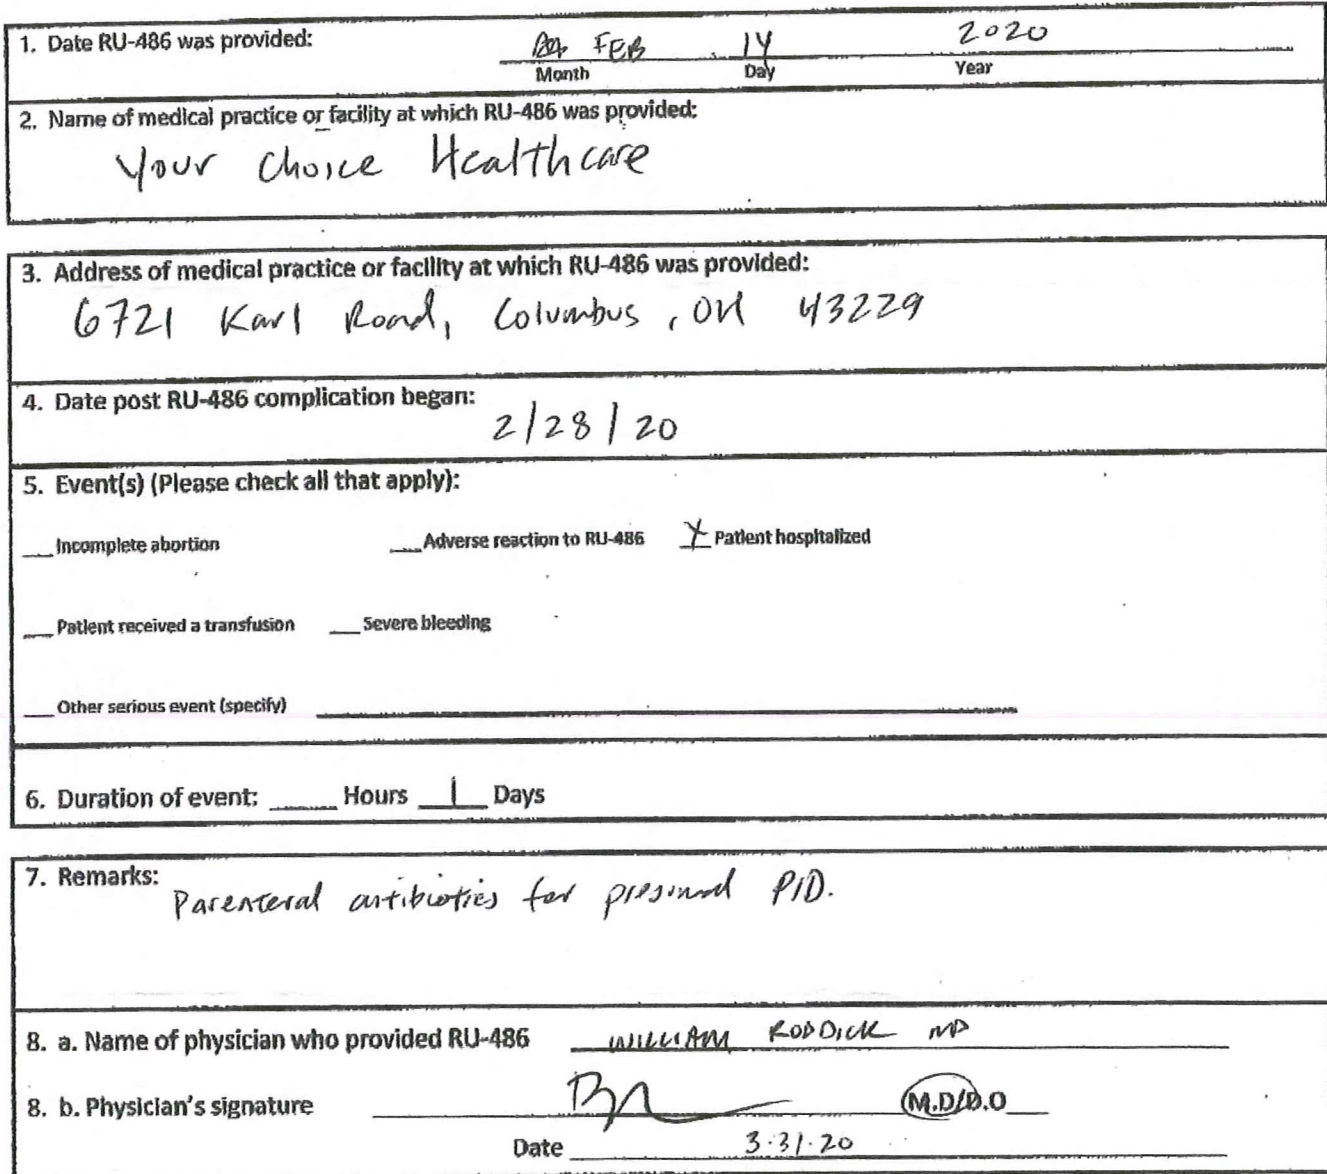 1. Date RU-486 was provided: FEB 14 2020
Month Day Year
2. Name of medical practice or facility at which RU-486 was provided:
Your Choice Healthcare
3. Address of medical practice or facility at which RU-486 was provided:
6721 Karl Road, Columbus, OH 43229
4. Date post RU-486 complication began:
2/28/20
5. Event(s) (Please check all that apply):
__Incomplete abortion __Adverse reaction to RU-486 X Patient hospitalized
__Patient received a transfusion __Severe bleeding
__Other serious event (specify)
6. Duration of event: __ Hours 1 Days
7. Remarks:
Parenteral antibiotics for PID.
8. a. Name of physician who provided RU-486 WILLIAM RODDICK MD
8. b. Physician's signature M.D/D.O
Date 3.31.20